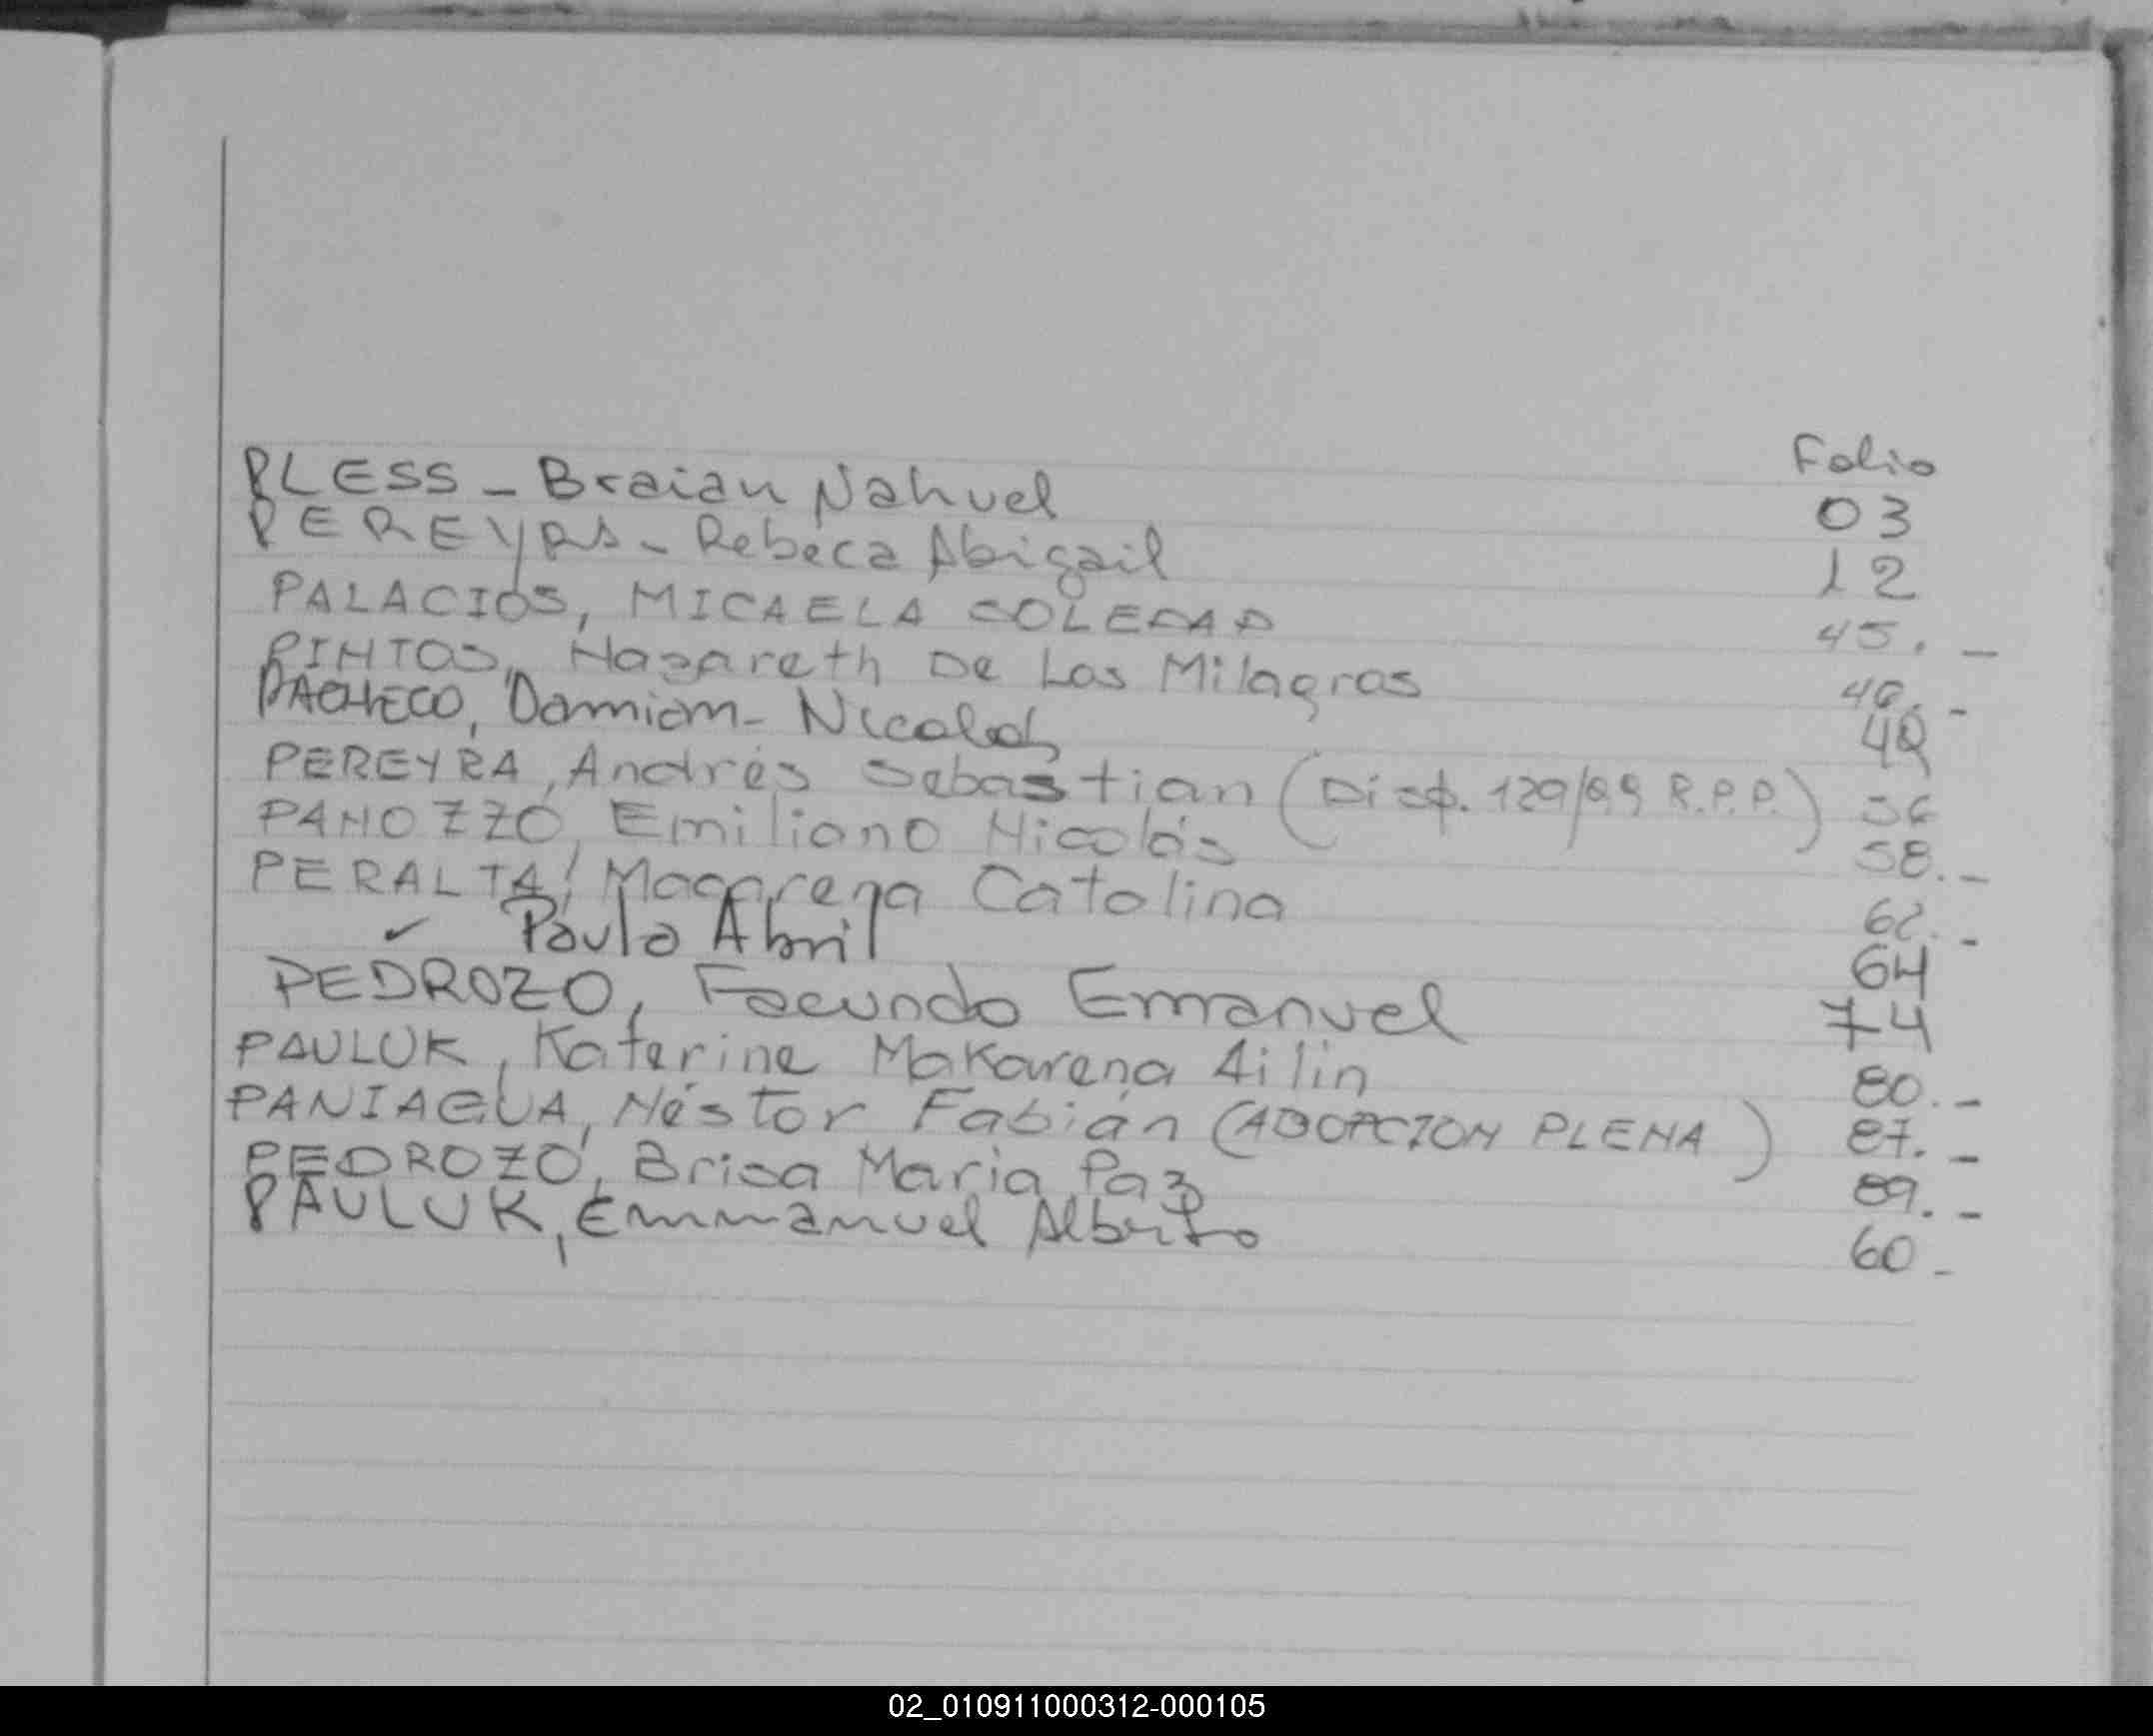 Folio
PLESS - Braian Nahuel 03
PEREYRA - Rebeca Abigail 12
PALACIOS, MICAELA SOLEDAD 45.-
PINTOS, Nazareth De Los Milagros 46.-
PACHECO, Damian - Nicolas 49
PEREYRA, Andrés Sebastian (Disp. 129/99 R.P.P.) 56
PANOZZO, Emiliano Nicolás 58.-
PERALTA, Macarena Catolina 62.-
✓ Paula Abril 64
PEDROZO, Facundo Emanuel 74
PAULUK, Katerine Makarena Ailin 80.-
PANIAGUA, Néstor Fabián (ADOPCION PLENA) 87.-
PEDROZO, Brisa Maria Paz 89.-
PAULUK, Emmanuel Alberto 60-
02_010911000312-000105